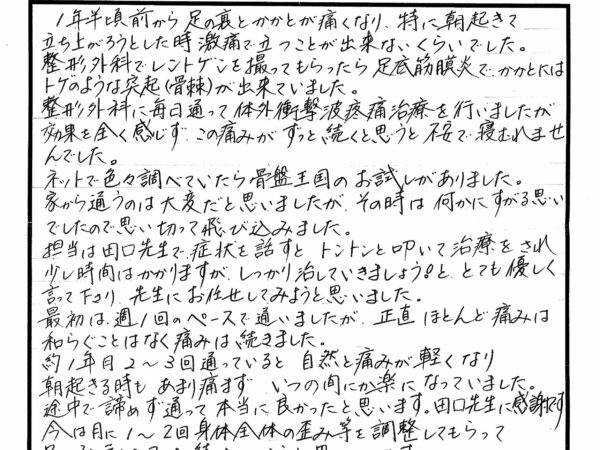 1年半頃前から足の裏とかかとが痛くなり、特に朝起きて
立ち上がろうとした時激痛で立つことが出来ないくらいでした。
整形外科でレントゲンを撮ってもらったら足底筋膜炎でかかとには
トゲのような突起(骨棘)が出来ていました。
整形外科に毎日通って体外衝撃波疼痛治療を行いましたが
効果を全く感じず、この痛みがずっと続くと思うと不安で寝むれませ
んでした。
ネットで色々調べていたら骨盤王国のお試しがありました。
家から通うのは大変だと思いましたが、その時は何かにすがる思い
でしたので思い切って飛び込みました。
担当は田口先生で、症状を話すとトントンと叩いて治療をされ
少し時間はかかりますが、しっかり治していきましょう!と、とても優しく
言って下さり、先生にお任せしてみようと思いました。
最初は、週1回のペースで通いましたが、正直ほとんど痛みは
和らぐことはなく痛みは続きました。
約1年目2～3回通っていると自然と痛みが軽くなり
朝起きる時もあまり痛まず、いつの間にか楽になっていました。
途中で諦めず通って本当に良かったと思います。田口先生に感謝です
今は月に1～2回身体全体の歪み等を調整してもらって